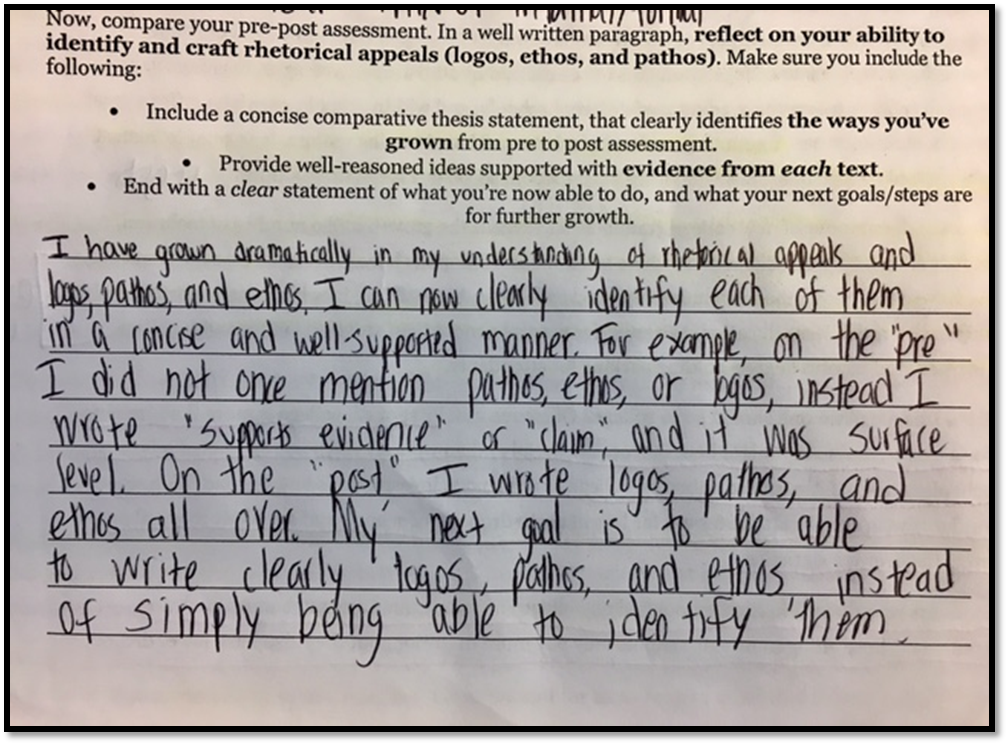 Now, compare your pre-post assessment. In a well written paragraph, reflect on your ability to
identify and craft rhetorical appeals (logos, ethos, and pathos). Make sure you include the
following:
• Include a concise comparative thesis statement, that clearly identifies the ways you've
grown from pre to post assessment.
• Provide well-reasoned ideas supported with evidence from each text.
• End with a clear statement of what you're now able to do, and what your next goals/steps are
for further growth.
I have grown dramatically in my understanding of rhetorical appeals and
logos, pathos, and ethos. I can now clearly identify each of them
in a concise and well-supported manner. For example, on the "pre"
I did not once mention pathos, ethos, or logos, instead I
wrote "supports evidence" or "claim", and it was surface
level. On the "post", I wrote logos, pathos, and
ethos all over. My next goal is to be able
to write clearly logos, pathos, and ethos, instead
of simply being able to identify them.